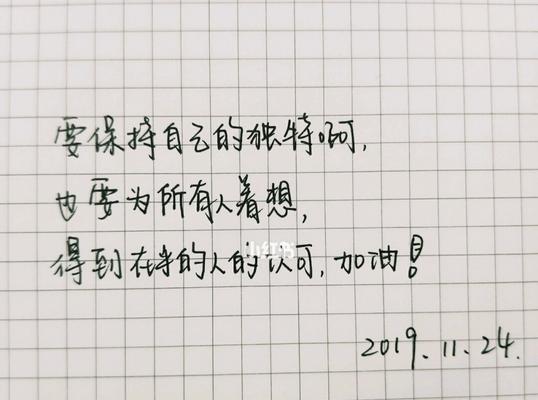 要保持自己的独特啊,
也要为所有人着想,
得到在乎的人的认可,加油!
小红书
2019.11.24.